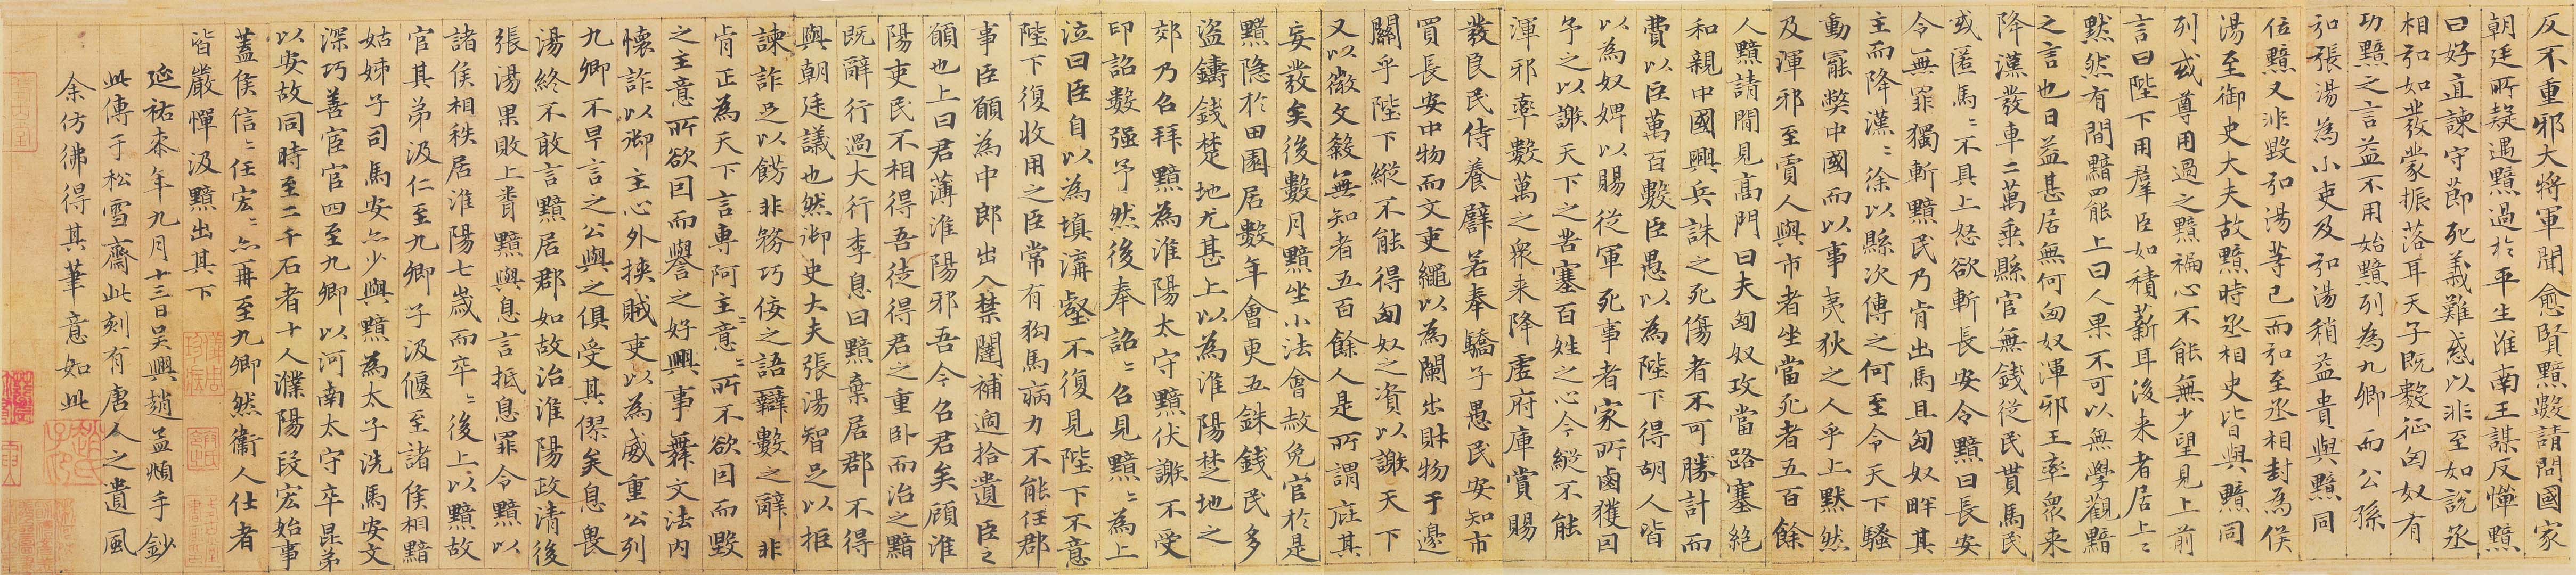 反不重邪大將軍聞愈賢黯數請問國家
朝廷所疑遇黯過於平生淮南王謀反憚黯
曰好直諫守節死義難惑以非至如說丞
相弘如發蒙振落耳天子既數征匈奴有
功黯之言益不用始黯列為九卿而公孫
弘張湯為小吏及弘湯稍益貴與黯同
位黯又非毀弘湯等已而弘至丞相封為侯
湯至御史大夫故黯時丞相史皆與黯同
列或尊用過之黯褊心不能無少望見上前
言曰陛下用羣臣如積薪耳後来者居上〻
黙然有間黯罷上曰人果不可以無學觀黯
之言也日益甚居無何匈奴渾邪王率衆来
降漢發車二萬乘縣官無錢從民貰馬民
或匿馬〻不具上怒欲斬長安令黯曰長安
令無罪獨斬黯民乃肯出馬且匈奴畔其
主而降漢〻徐以縣次傳之何至令天下騷
動罷獘中國而以事夷狄之人乎上黙然
及渾邪至賈人與市者坐當死者五百餘
人黯請閒見髙門曰夫匈奴攻當路塞絶
和親中國興兵誅之死傷者不可勝計而
費以臣萬百數臣愚以為陛下得胡人皆
以為奴婢以賜從軍死事者家所鹵獲因
予之以謝天下之苦塞百姓之心今縱不能
渾邪率數萬之衆来降虛府庫賞賜
發良民侍養譬若奉驕子愚民安知市
買長安中物而文吏繩以為闌出財物于邊
關乎陛下縱不能得匈奴之資以謝天下
又以微文殺無知者五百餘人是所謂庇其
妄發矣後數月黯坐小法會赦免官於是
黯隐於田園居數年會更五銖錢民多
盜鑄錢楚地尤甚上以為淮陽楚地之
郊乃召拜黯為淮陽太守黯伏謝不受
印詔數强予然後奉詔〻召見黯〻為上
泣曰臣自以為填溝壑不復見陛下不意
陛下復收用之臣常有狗馬病力不能任郡
事臣願為中郎出入禁闥補過拾遺臣之
願也上曰君薄淮陽邪吾今召君矣顧淮
陽吏民不相得吾徒得君之重卧而治之黯
既辭行過大行李息曰黯棄居郡不得
與朝廷議也然御史大夫張湯智足以拒
諫詐足以餝非務巧佞之語辯數之辭非
肯正為天下言專阿主意〻所不欲因而毀
之主意所欲因而譽之好興事舞文法内
懷詐以御主心外挾賊吏以為威重公列
九卿不早言之公與之俱受其僇矣息畏
湯終不敢言黯居郡如故治淮陽政清後
張湯果敗上聞黯與息言抵息罪令黯以
諸侯相秩居淮陽七歲而卒〻後上以黯故
官其弟汲仁至九卿子汲偃至諸侯相黯
姑姊子司馬安亦少與黯為太子洗馬安文
深巧善宦官四至九卿以河南太守卒昆弟
以安故同時至二千石者十人濮陽段宏始事
蓋侯信〻任宏〻亦再至九卿然衛人仕者
皆嚴憚汲黯出其下
延祐柒年九月十三日吳興趙孟頫手鈔
此傳于松雪齋此刻有唐人之遺風
余仿彿得其筆意如此